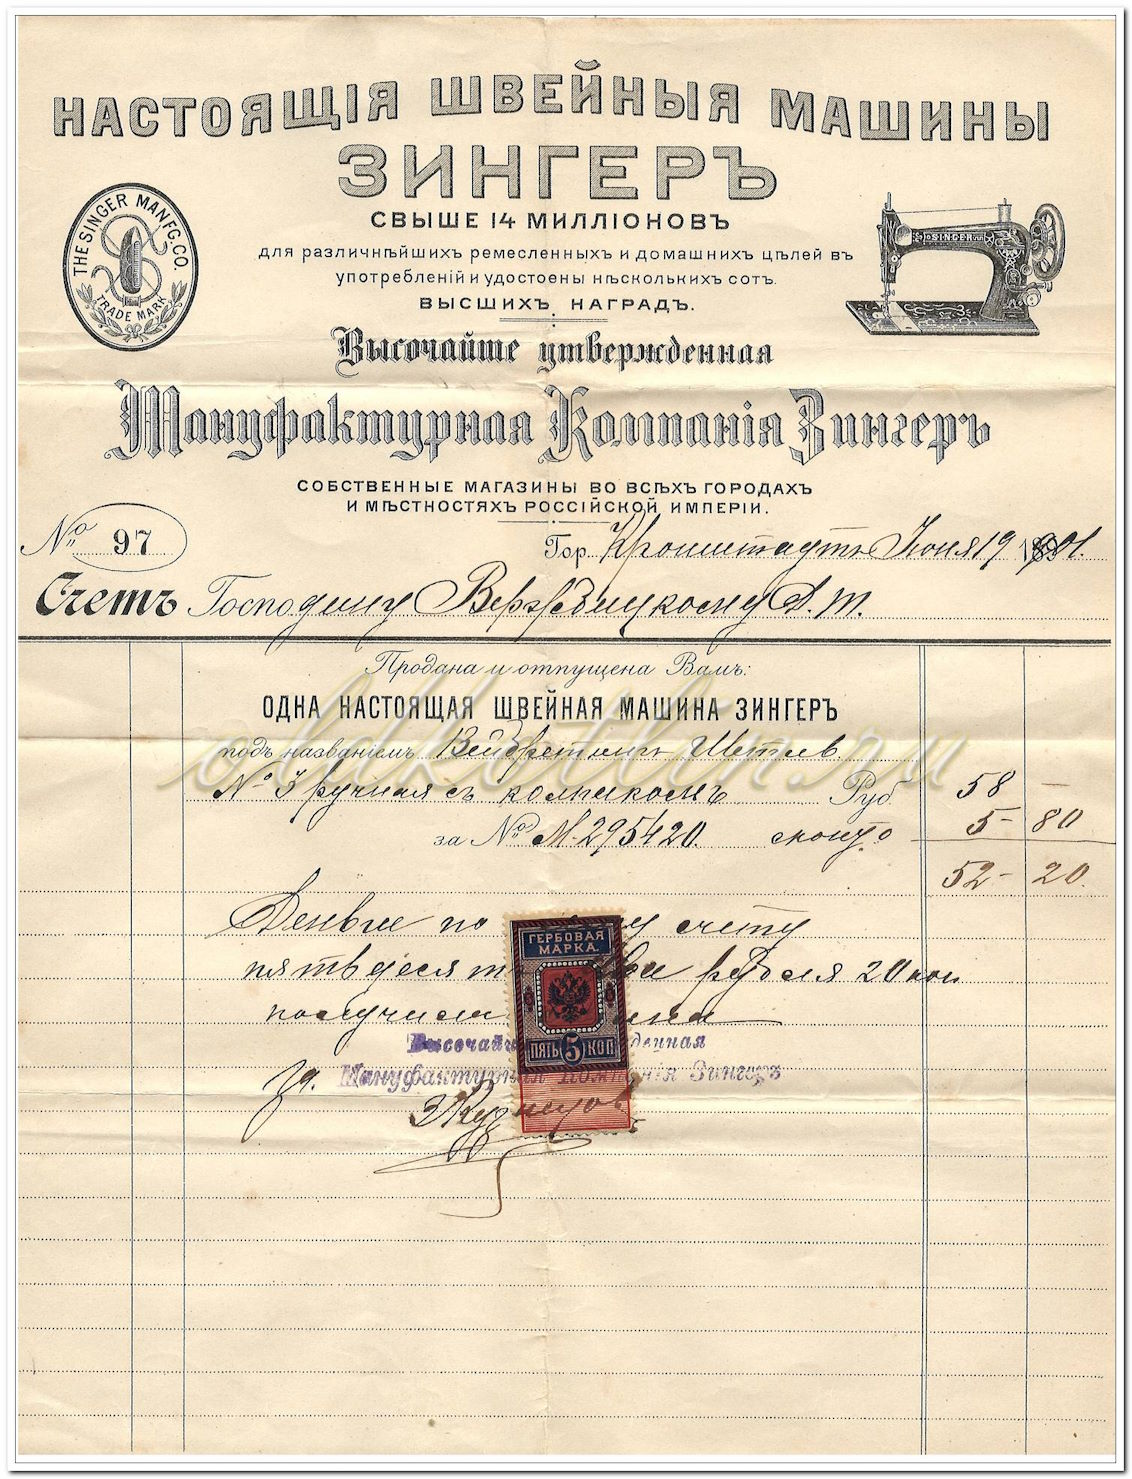 НАСТОЯЩІЯ ШВЕЙНЫЯ МАШИНЫ
ЗИНГЕРЪ
THE SINGER MANFG. CO.
TRADE MARK
СВЫШЕ 14 МИЛЛІОНОВЪ
для различнѣйшихъ ремесленныхъ и домашнихъ цѣлей въ
употребленій и удостоены нѣсколькихъ сотъ
ВЫСШИХЪ НАГРАДЪ.
SINGER
Высочайше утвержденная
Мануфактурная Компанія Зингеръ
СОБСТВЕННЫЕ МАГАЗИНЫ ВО ВСѢХЪ ГОРОДАХЪ
И МѢСТНОСТЯХЪ РОССІЙСКОЙ ИМПЕРІИ.
№ 97
Гор. Кронштадтъ Іюня 19 1901.
Счетъ Господину Вержбицкому Д. Т.
Продана и отпущена Вамъ:
ОДНА НАСТОЯЩАЯ ШВЕЙНАЯ МАШИНА ЗИНГЕРЪ
подъ названіемъ
№ 3 ручная съ колпакомъ Руб. 58 —
за № М. 295420. сконто 5 - 80
52 - 20.
Деньги по счету
рубля 20 коп.
ГЕРБОВАЯ
МАРКА
5 5
ПЯТЬ 5 КОП
получилъ
Высочай денная
Мануфактурная Компанія Зингеръ
За.
oldkatlin.ru